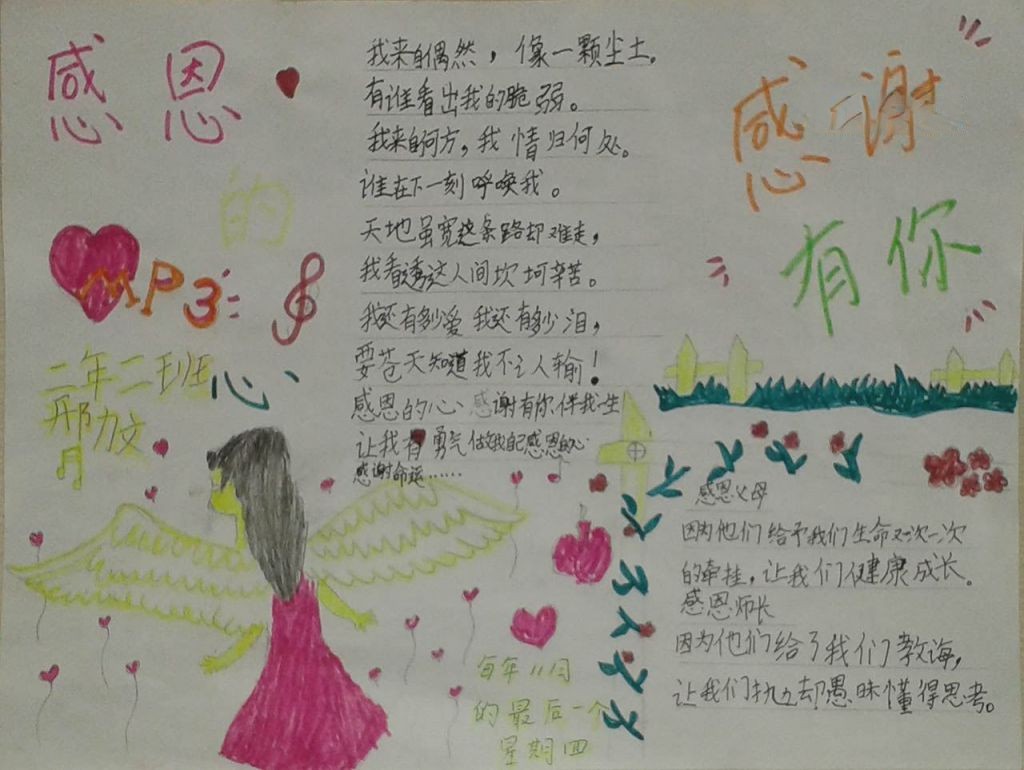 感恩
的
心
MP3:
二年二班
邢力文
我来自偶然，像一颗尘土，
有谁看出我的脆弱。
我来自何方，我情归何处。
谁在下一刻呼唤我。
天地虽宽这条路却难走，
我看透这人间坎坷辛苦。
我还有多少爱我还有多少泪，
要苍天知道我不认输！
感恩的心感谢有你伴我一生
让我有勇气做我自己感恩的心
感谢命运……
感谢
有你
感恩父母
因为他们给予我们生命又一次一次
的牵挂，让我们健康成长。
感恩师长
因为他们给了我们教诲，
让我们抛却愚昧懂得思考。
每年11月
的最后一个
星期四